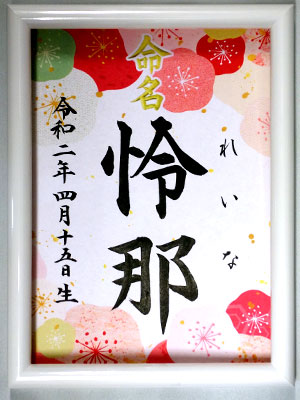 命名
れいな
怜那
令和二年四月十五日生